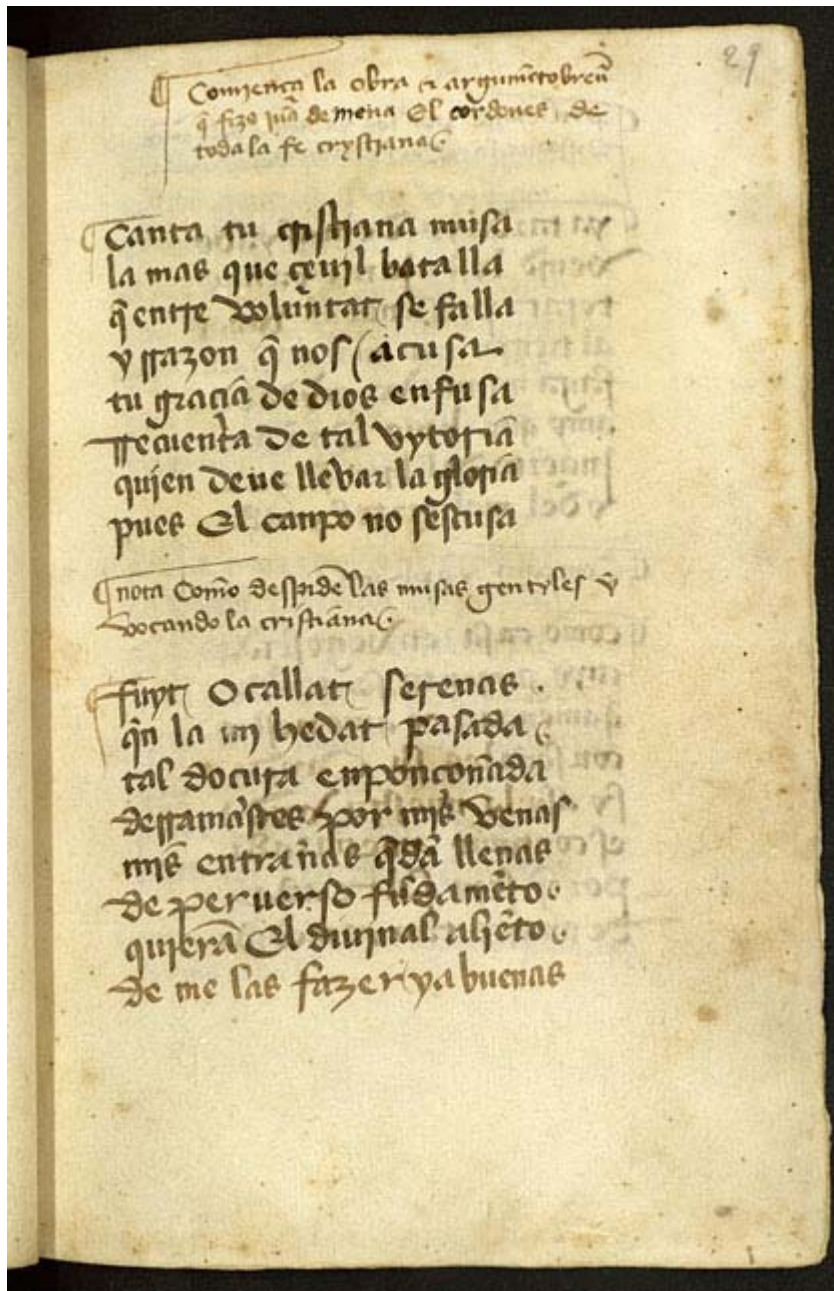 29
Comiença la obra & argumẽto breue
q̃ fizo juã de mena El cordoues de
toda la fe crystiana
Canta tu cristiana musa
la mas que çeuil batalla
q̃ entre voluntat se falla
y rrazon q̃ nos acusa
tu graçia de dios enfusa
rrecuenta de tal vytoria
quien deue llevar la gloria
pues El canpo no sescusa
nota Como despide las musas gentyles y
vocando la cristiana
fuyt O callat serenas
q̃n la mj hedat pasada
tal doçura enponçoñada
derramastes por mis venas
mis entrañas q̃dã llenas
de peruerso fũdamẽto
quierã El diujnal aliẽto
de me las fazer ya buenas